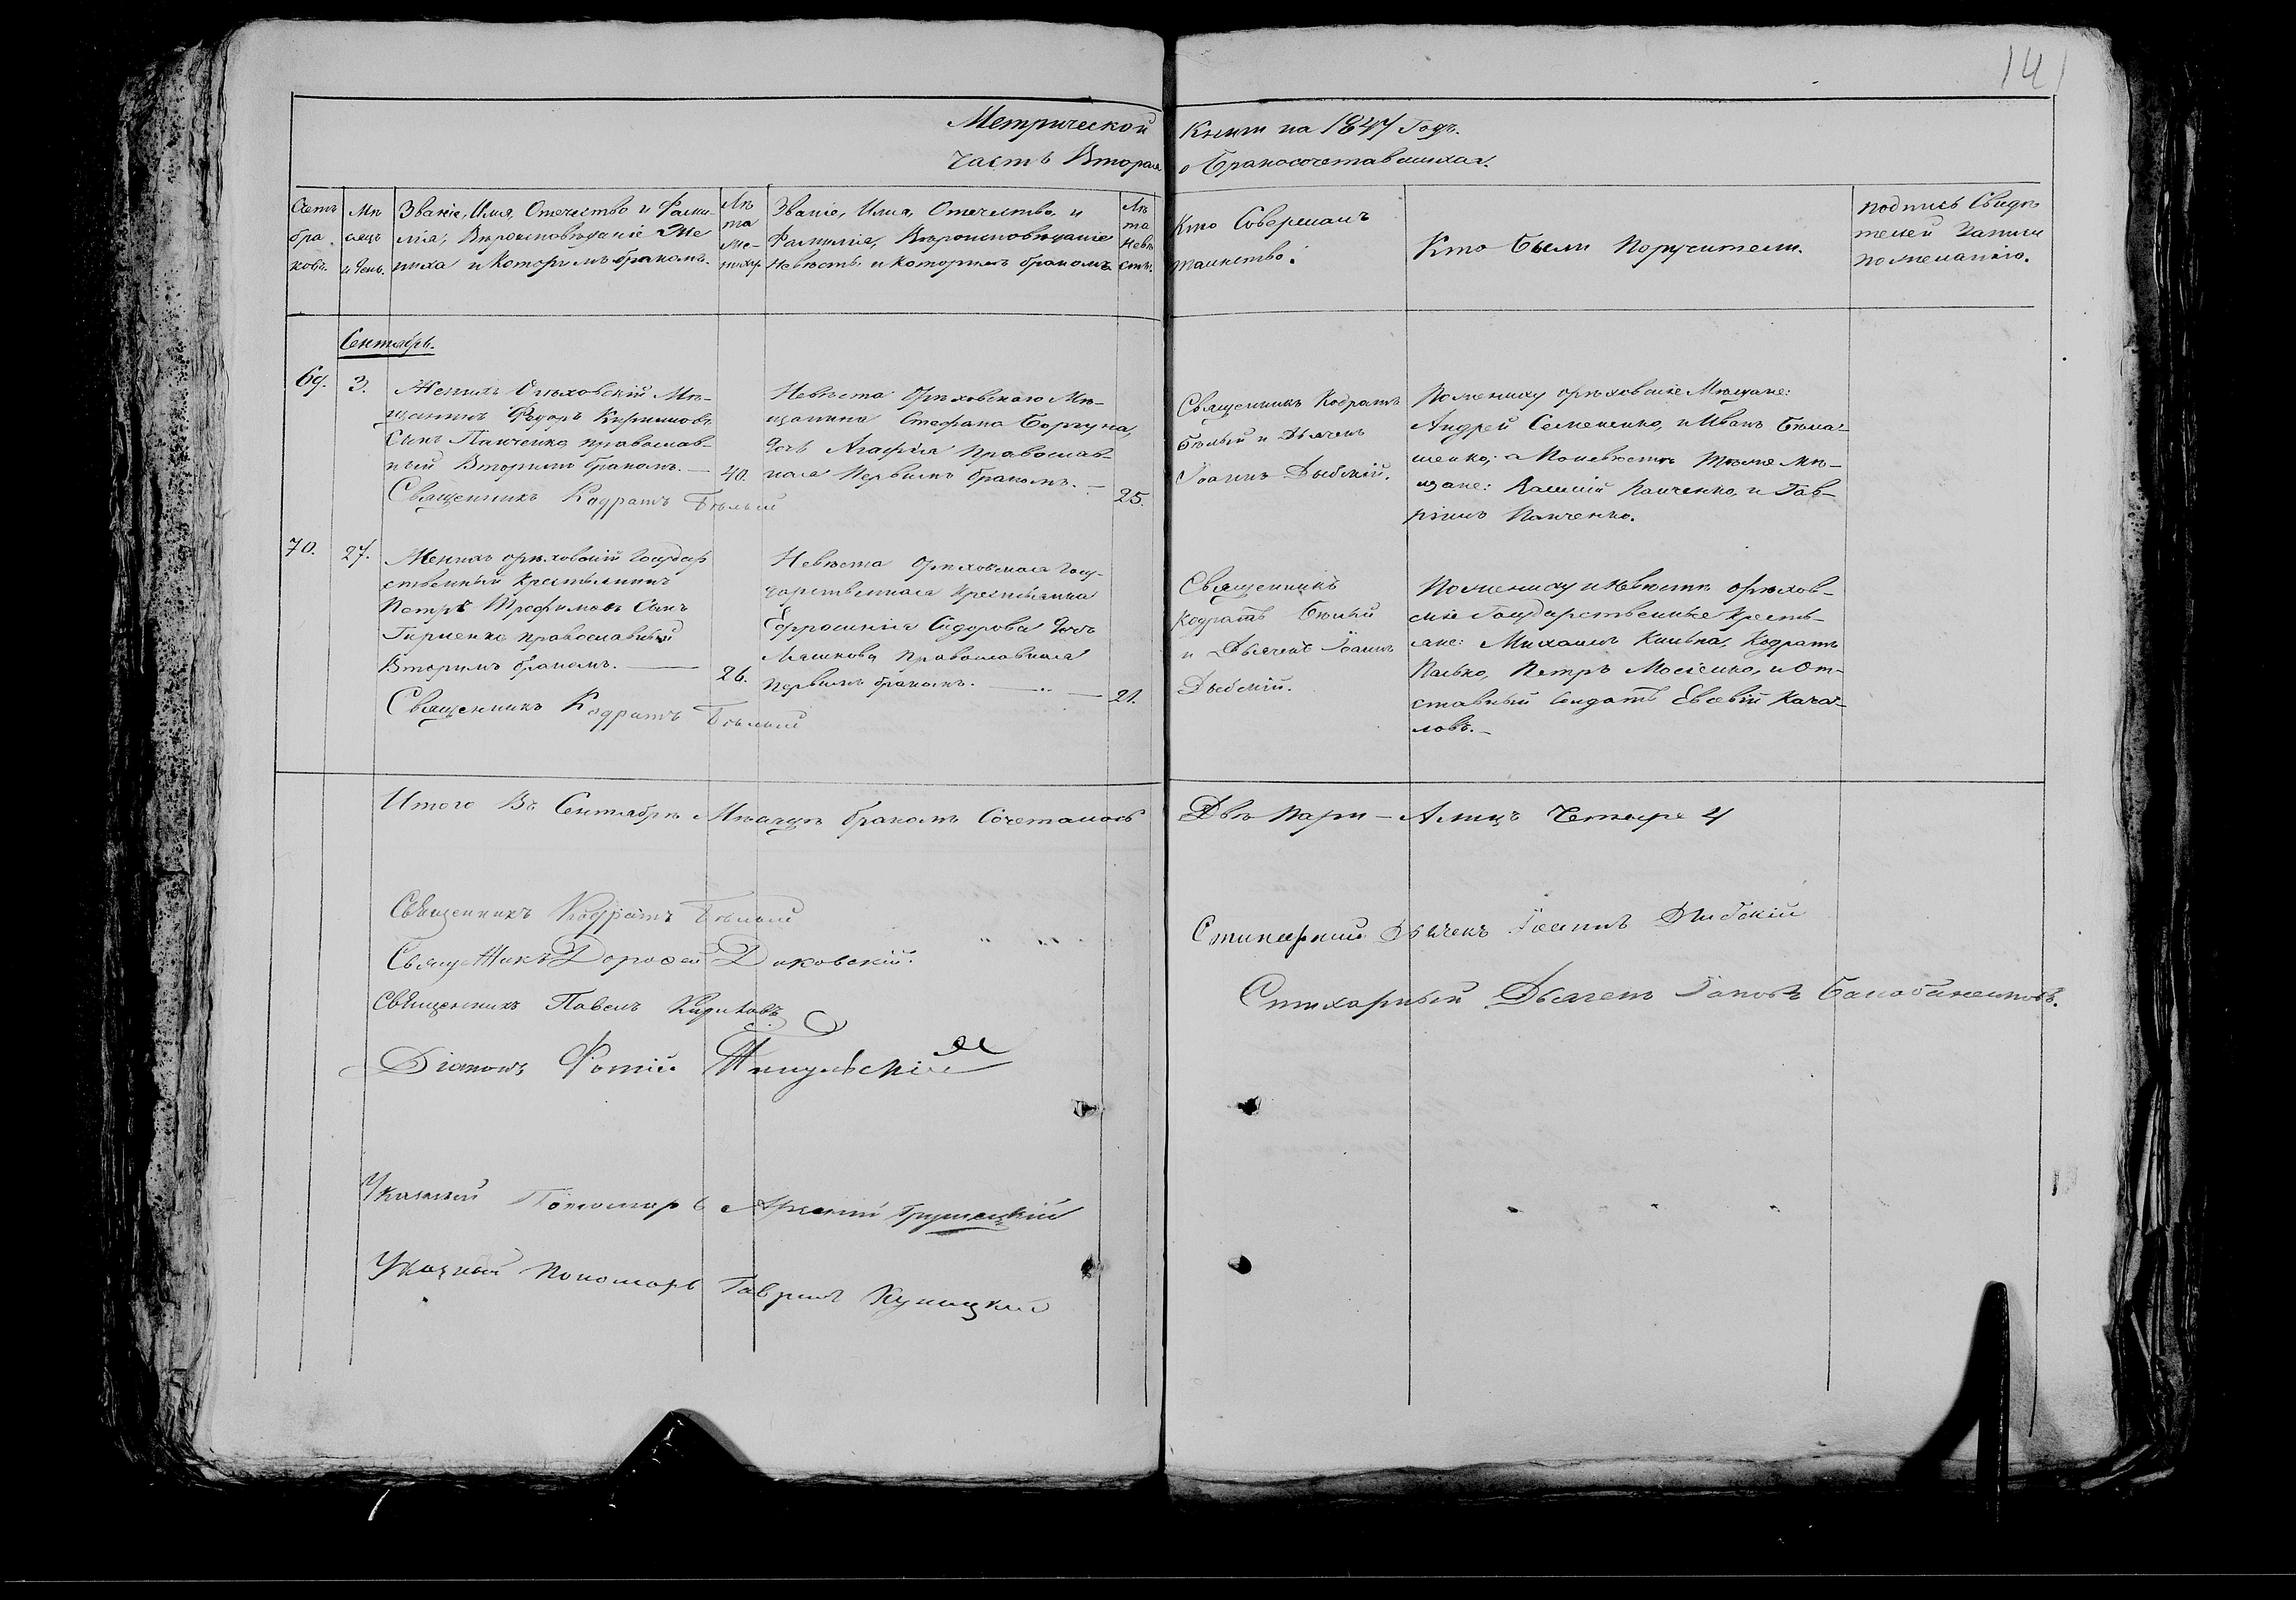 141
Метрической Книги на 1847 Годъ.
Часть Вторая о Бракосочетавшихся.
Счетъ
бра
ковъ.
Мѣ
сяцъ
и день.
Званіе, Имя, Отечество и Фами-
лія, Вѣроисповѣданіе Же
ниха и Которымъ бракомъ.
Лѣ
та
Же-
ниху.
Званіе, Имя, Отечество, и
Фамилія, Вѣроисповѣданіе
Невѣсты и Которымъ бракомъ
Лѣ
та
Невѣ
стѣ.
Кто Совершалъ
таинство.
Кто были Поручители.
Подпись Свидѣ
телей Записи
по желанію.
Сентябрь.
69.
3.
Женихъ Орѣховскій Мѣ-
щанинъ Федоръ Кириловъ
Сынъ Панченко, православ-
ный Вторымъ бракомъ. —
40.
Священникъ Кодратъ Бѣлый
Невѣста Орѣховскаго Мѣ-
щанина Стефана Боргуна,
дочь Агафія Православ-
ная Первымъ бракомъ. —
25.
Священникъ Кодратъ
Бѣлый и Дьячекъ
Іоаннъ Дыбскій.
По жениху орѣховскіе Мѣщане:
Андрей Семененко, и Иванъ Бѣла-
шенко; а По невѣстѣ тѣже Мѣ-
щане: Василій Панченко, и Гав-
ріилъ Панченко.
70.
27.
Женихъ орѣховскій Государ
ственный крестьянинъ
Петръ Трофимовъ Сынъ
Гирченко православный
Вторымъ бракомъ. —
26.
Священникъ Кодратъ Бѣлый
Невѣста Орѣховская Госу-
дарственная крестьянка
Ефросинія Сидорова дочь
Машкова православная
Первымъ бракомъ. —
21.
Священникъ
Кодратъ Бѣлый
и Дьячекъ Іоаннъ
Дыбскій.
По жениху и Невѣстѣ орѣхов-
скіе Государственные Кресть-
яне: Михаилъ Кильна, Кодратъ
Палько, Петръ Мосіенко, и От-
ставный Солдатъ Евсевій Кача-
ловъ. —
Итого Въ Сентябрѣ Мѣсяцѣ бракомъ Сочеталось Двѣ Пары — А лицъ Четыре 4
Священникъ Кодратъ Бѣлый
Священникъ Дорофей Диковскій.
Священникъ Павелъ Кириловъ
Діаконъ Фотій
Стихарный Дьячекъ Іоаннъ Дыбскій
Стихарный Дьячекъ Іаковъ Балабаненковъ.
Указный Пономарь Арсеній Грушецкій
Указный Пономарь Гавріилъ Куницкій